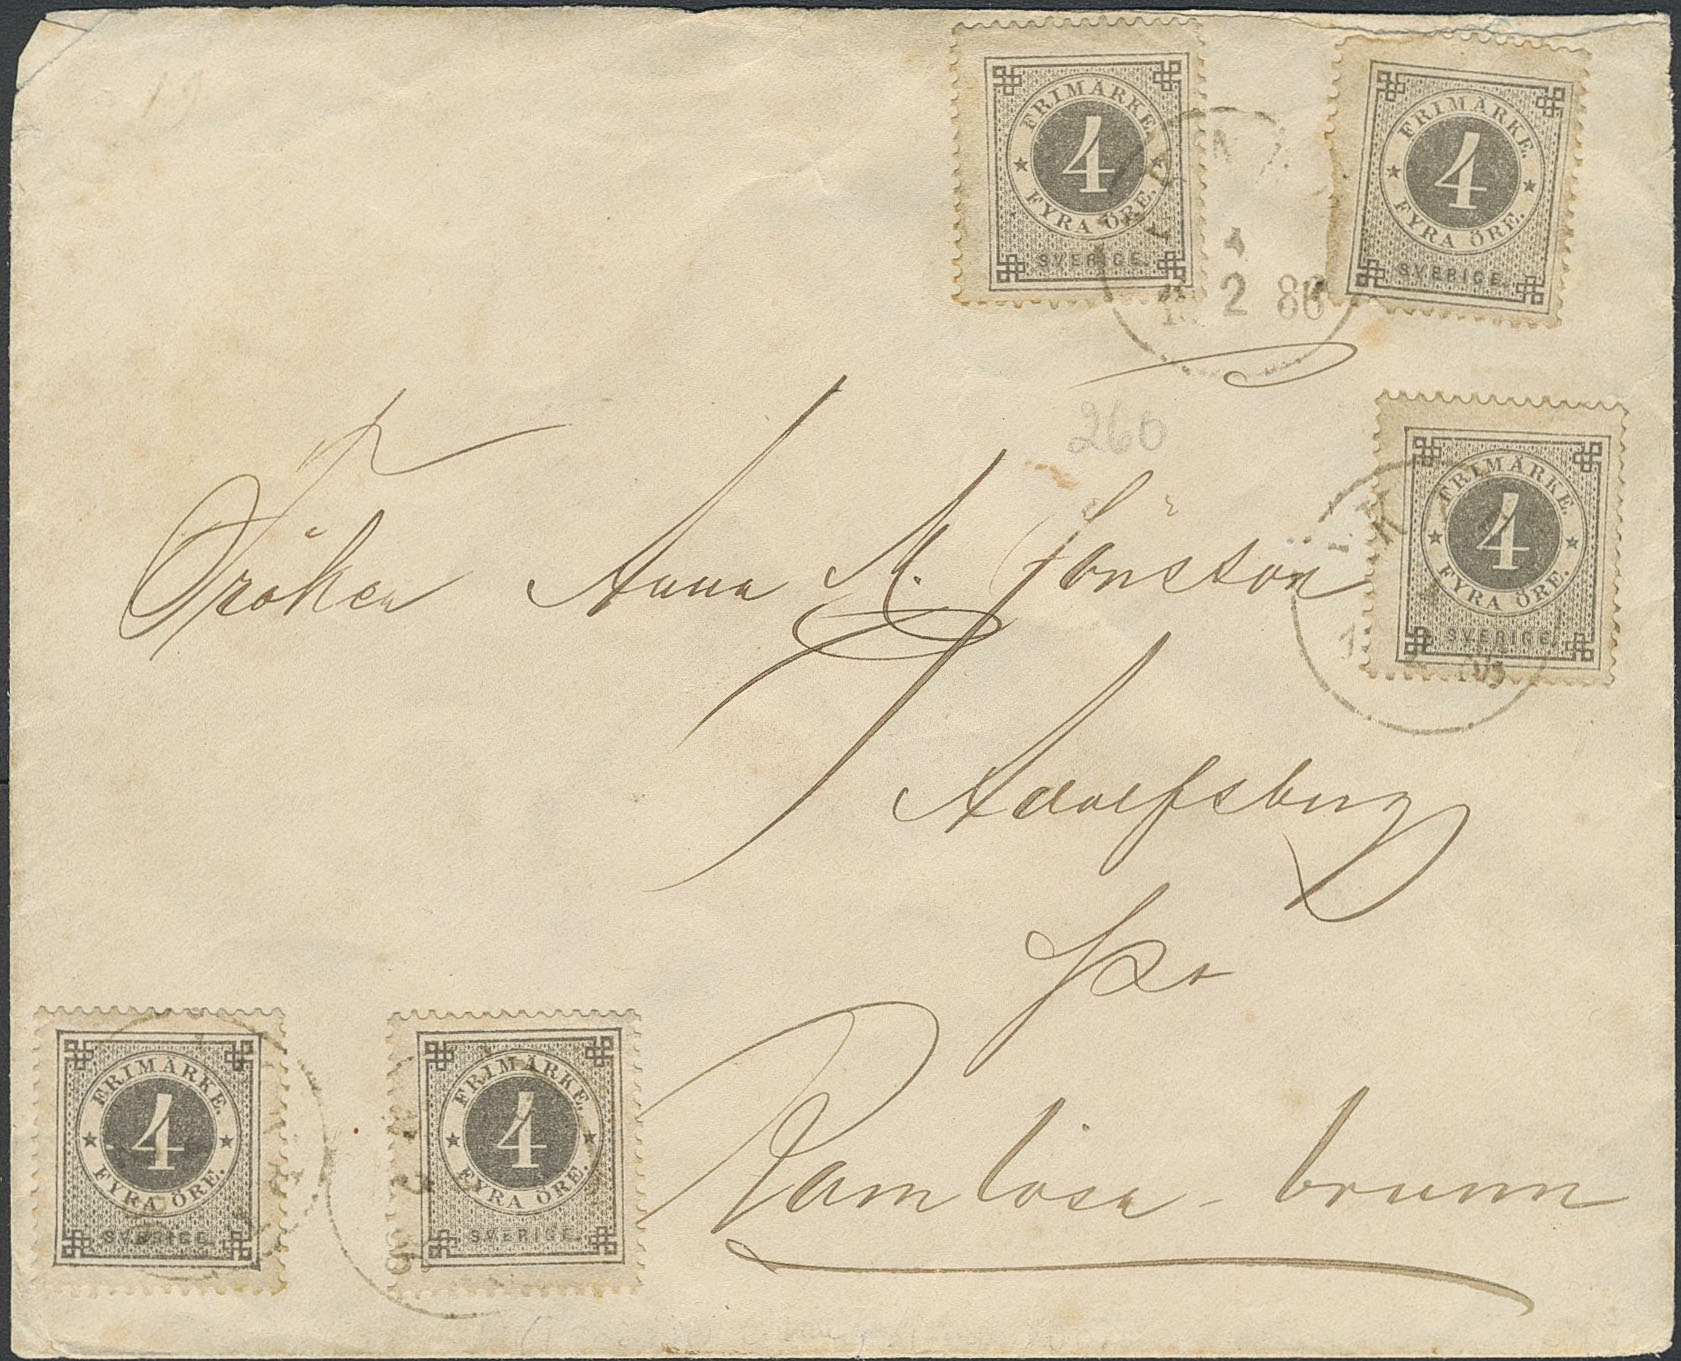 19
FRIMÄRKE.
4
FYRA ÖRE.
SVERIGE.
FRIMÄRKE.
4
FYRA ÖRE.
SVERIGE.
4
2 86
260
FRIMÄRKE.
4
FYRA ÖRE.
SVERIGE.
Fröken Anna M. Jönsson
Adolfsberg
pr
Ramlösa-brunn
FRIMÄRKE.
4
FYRA ÖRE.
SVERIGE.
FRIMÄRKE.
4
FYRA ÖRE.
SVERIGE.